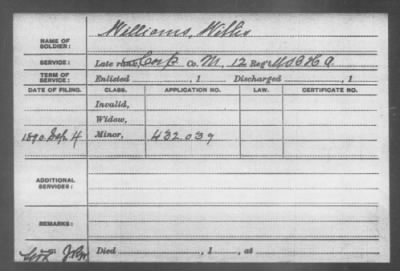 NAME OF SOLDIER: Williams, Willis
SERVICE: Late rank, Corp Co. M, 12 Reg't U.S.C.H.A.
TERM OF SERVICE: Enlisted , 1 Discharged , 1
DATE OF FILING. CLASS. APPLICATION NO. LAW. CERTIFICATE NO.
Invalid,
Widow,
1890 Sep. 4 Minor, 432.039
ADDITIONAL SERVICES:
REMARKS:
Died , 1 , at